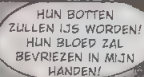 HUN BOTTEN
ZULLEN IJS WORDEN!
HUN BLOED ZAL
BEVRIEZEN IN MIJN
HANDEN!